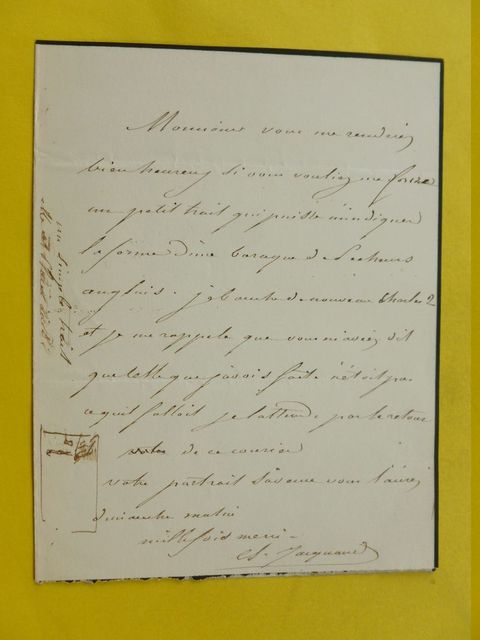 Monsieur vous me rendriez
bien heureux si vous vouliez me faire
un petit trait qui puisse m'indiquer
la forme d'une baraque de Pecheurs
anglais. j'ebauche de nouveau Charles 2
et je me rappele que vous m'aviez dit
que celle que j'avois faite n'étoit pas
ce qu'il falloit je l'attends par le retour
de ce courier
votre portrait s'avance vous l'aurez
dimanche matin
mille fois merci -
C. Jacquand
un simple trait